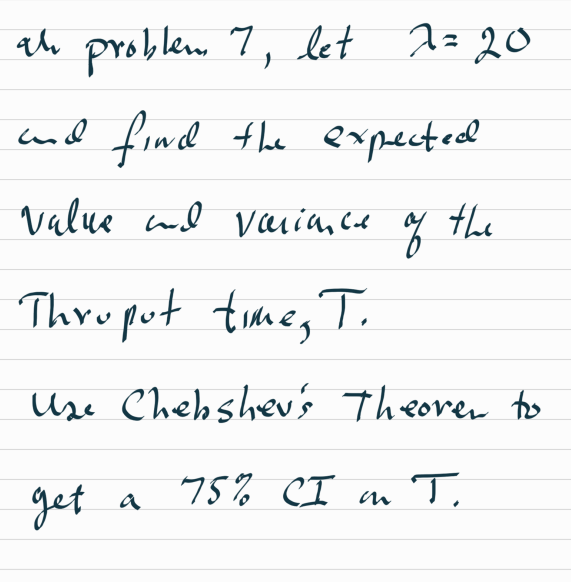 In problem 7, let λ = 20
and find the expected
value and variance of the
Thruput time, T.
Use Chebshev's Theorem to
get a 75% CI on T.